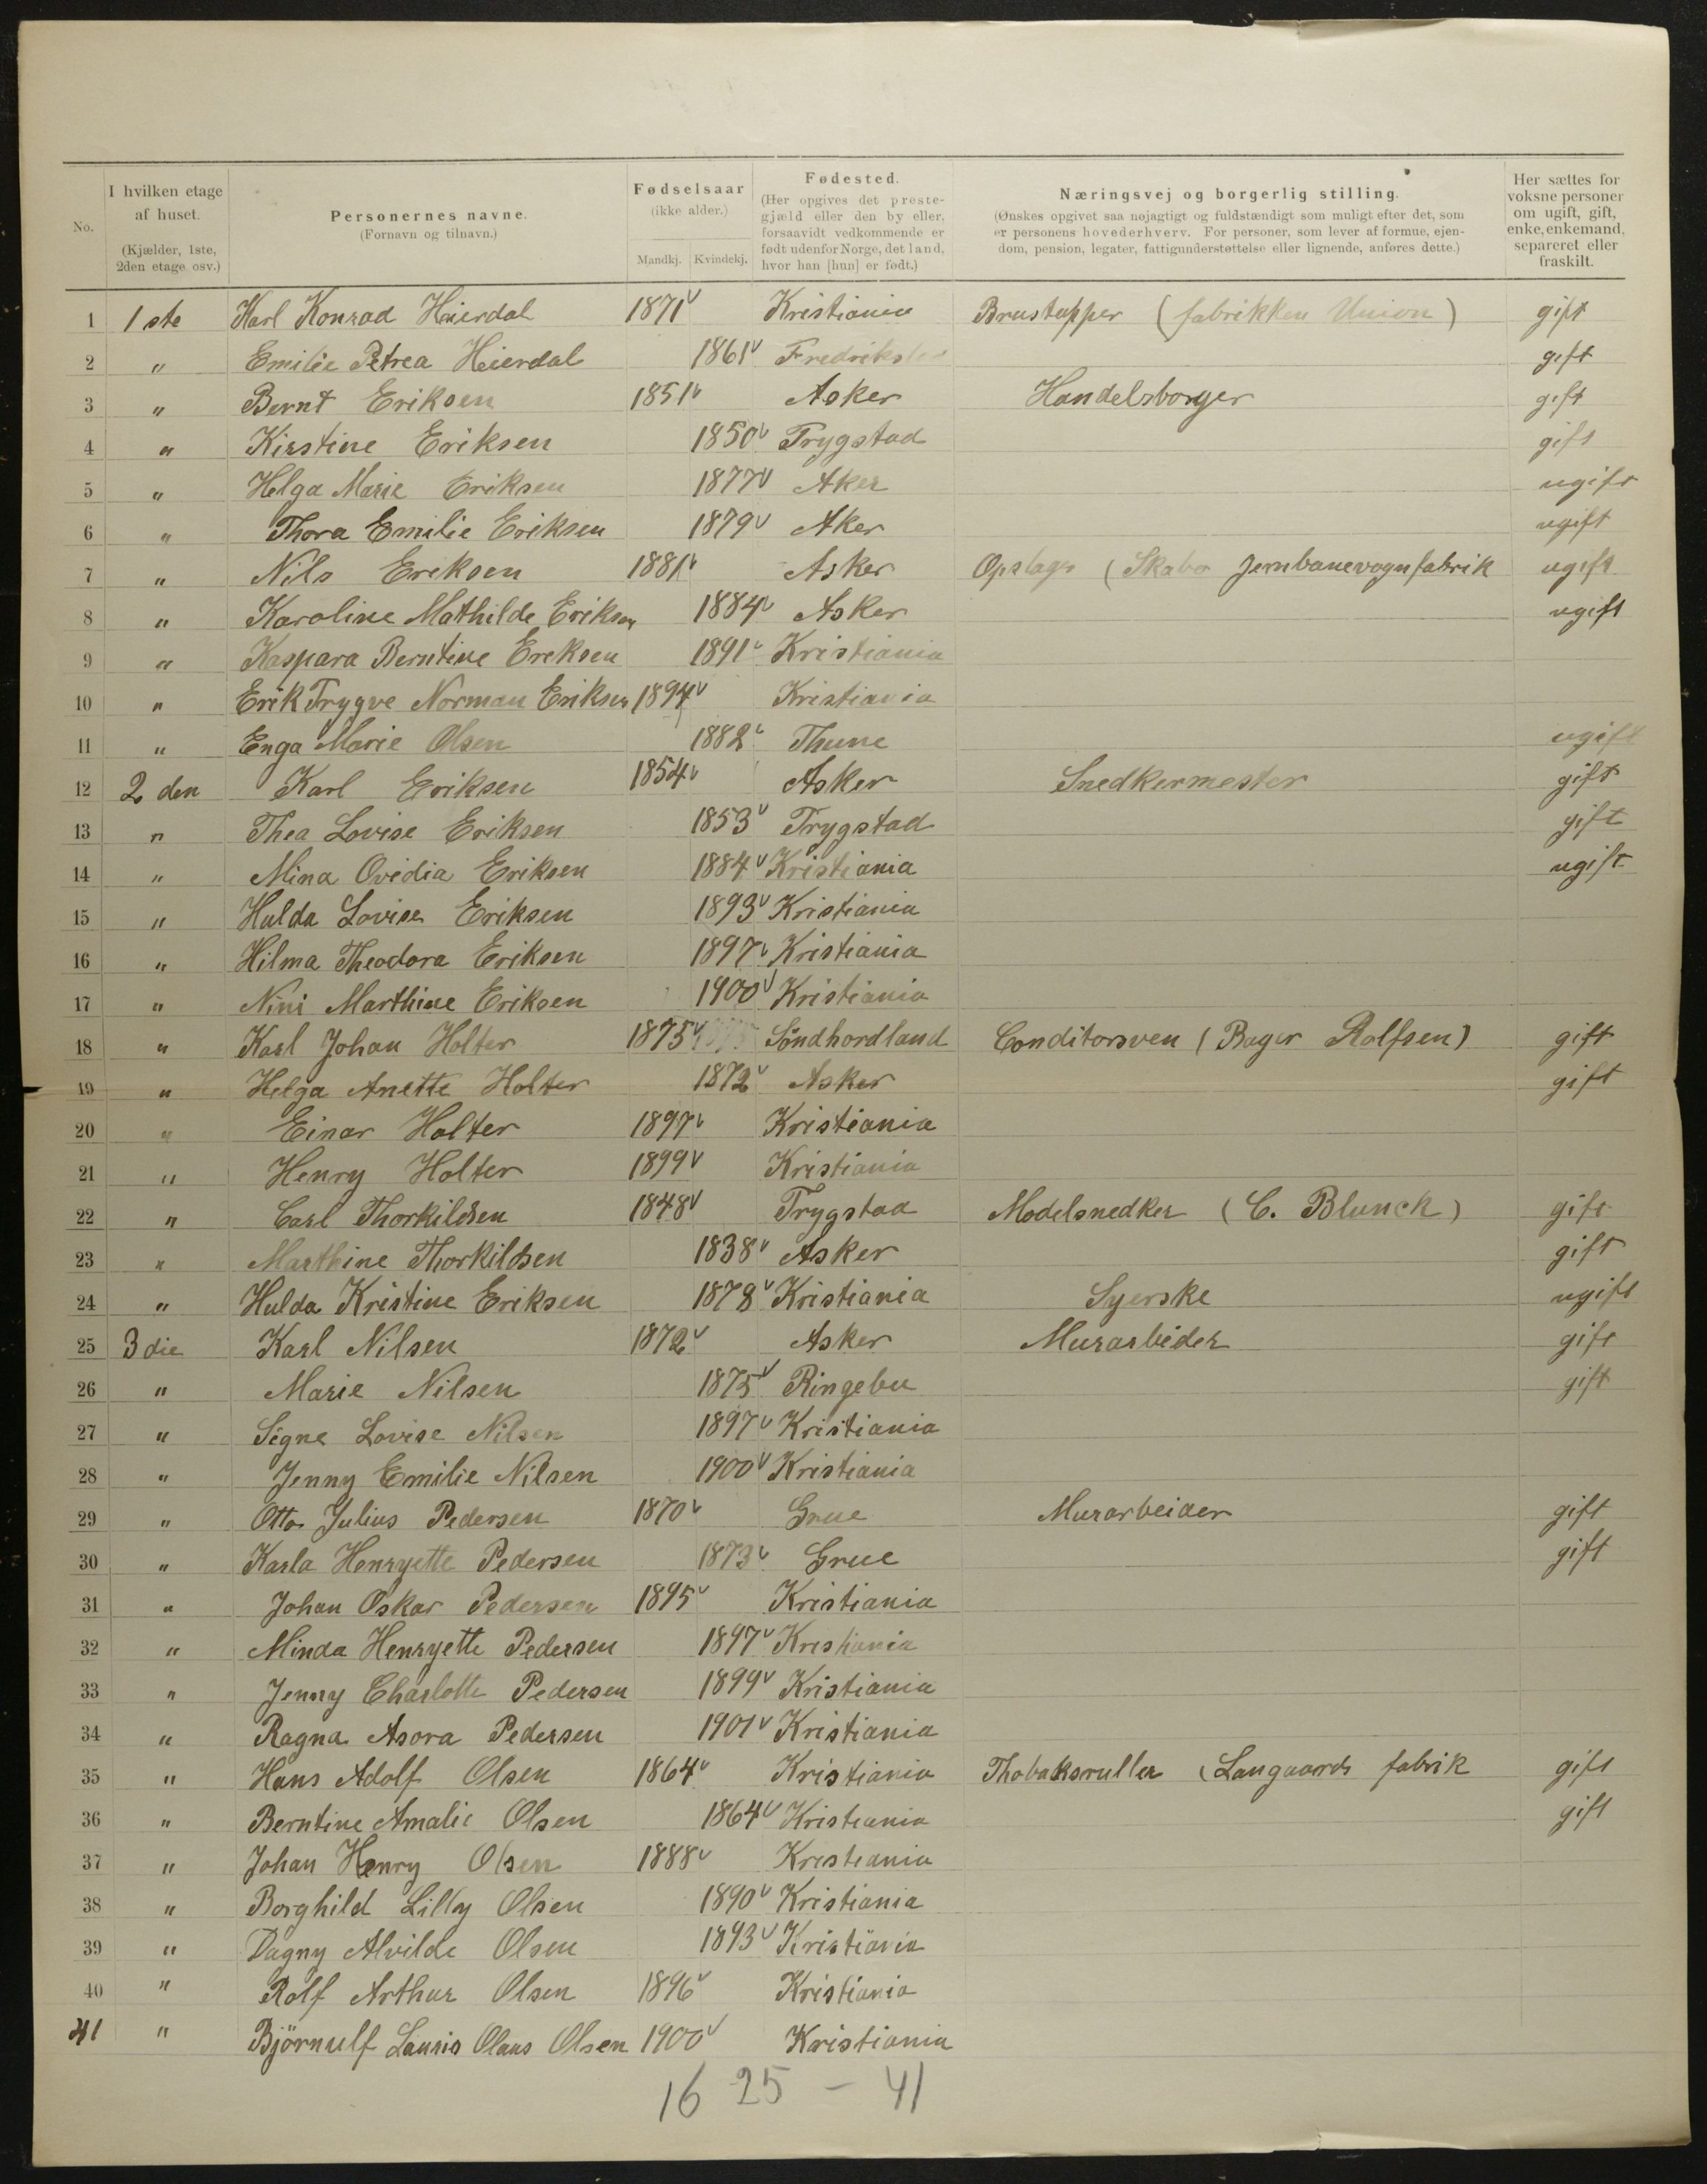 No.
I hvilken etage af huset.
(Kjælder, 1ste, 2den etage osv.)
Personernes navne.
(Fornavn og tilnavn.)
Fødselsaar
(ikke alder.)
Mandkj. Kvindekj.
Fødested.
(Her opgives det prestegjæld eller den by eller, forsaavidt vedkommende er født udenfor Norge, det land, hvor han [hun] er født.)
Næringsvej og borgerlig stilling.
(Ønskes opgivet saa nøjagtigt og fuldstændigt som muligt efter det, som er personens hovederhverv. For personer, som lever af formue, ejendom, pension, legater, fattigunderstøttelse eller lignende, anføres dette.)
Her sættes for voksne personer om ugift, gift, enke, enkemand, separeret eller fraskilt.
1 1ste Karl Konrad Heierdal 1871 Kristiania Brustapper (fabrikken Union) gift
2 " Emilie Petrea Heierdal 1861 gift
3 " Bernt Eriksen 1851 Asker Handelsborger gift
4 " Kirstine Eriksen 1850 Trygstad gift
5 " Helga Marie Eriksen 1877 Aker ugift
6 " Thora Emilie Eriksen 1879 Aker ugift
7 " Nils Eriksen 1881 Asker (Skabo Jernbanevognfabrik ugift
8 " Karoline Mathilde Eriksen 1884 Asker ugift
9 " Kaspara Berntine Ereksen 1891 Kristiania
10 " Erik Trygve Norman Eriksen 1894 Kristiania
11 " Enga Marie Olsen 1882 Thune ugift
12 2den Karl Eriksen 1854 Asker Snedkermester gift
13 " Thea Lovise Eriksen 1853 Trygstad gift
14 " Mina Ovidia Eriksen 1884 Kristiania ugift
15 " Hulda Lovise Eriksen 1893 Kristiania
16 " Hilma Theodora Eriksen 1897 Kristiania
17 " Nini Marthine Eriksen 1900 Kristiania
18 " Karl Johan Holter 1875 Söndhordland Conditorsven (Bager Rolfsen) gift
19 " Helga Anette Holter 1872 Asker gift
20 " Einar Holter 1897 Kristiania
21 " Henry Holter 1899 Kristiania
22 " Carl Thorkildsen 1848 Trygstad Modelsnedker (C. Blunck) gift
23 " Marthine Thorkildsen 1838 Asker gift
24 " Hulda Kristine Eriksen 1878 Kristiania Syerske ugift
25 3die Karl Nilsen 1872 Asker Murarbeider gift
26 " Marie Nilsen 1875 Ringebu gift
27 " Signe Lovise Nilsen 1897 Kristiania
28 " Jenny Emilie Nilsen 1900 Kristiania
29 " Otto Julius Pedersen 1870 Grue Murarbeider gift
30 " Karla Henryette Pedersen 1873 Grue gift
31 " Johan Oskar Pedersen 1895 Kristiania
32 " Minda Henryette Pedersen 1897 Kristiania
33 " Jenny Charlotte Pedersen 1899 Kristiania
34 " Ragna Asora Pedersen 1901 Kristiania
35 " Hans Adolf Olsen 1864 Kristiania Thobaksruller (Langaards fabrik gift
36 " Berntine Amalie Olsen 1864 Kristiania gift
37 " Johan Henry Olsen 1888 Kristiania
38 " Borghild Lilly Olsen 1890 Kristiania
39 " Dagny Alvilde Olsen 1893 Kristiania
40 " Rolf Arthur Olsen 1896 Kristiania
41 " Björnulf Lauris Olaus Olsen 1900 Kristiania
16 25 - 41